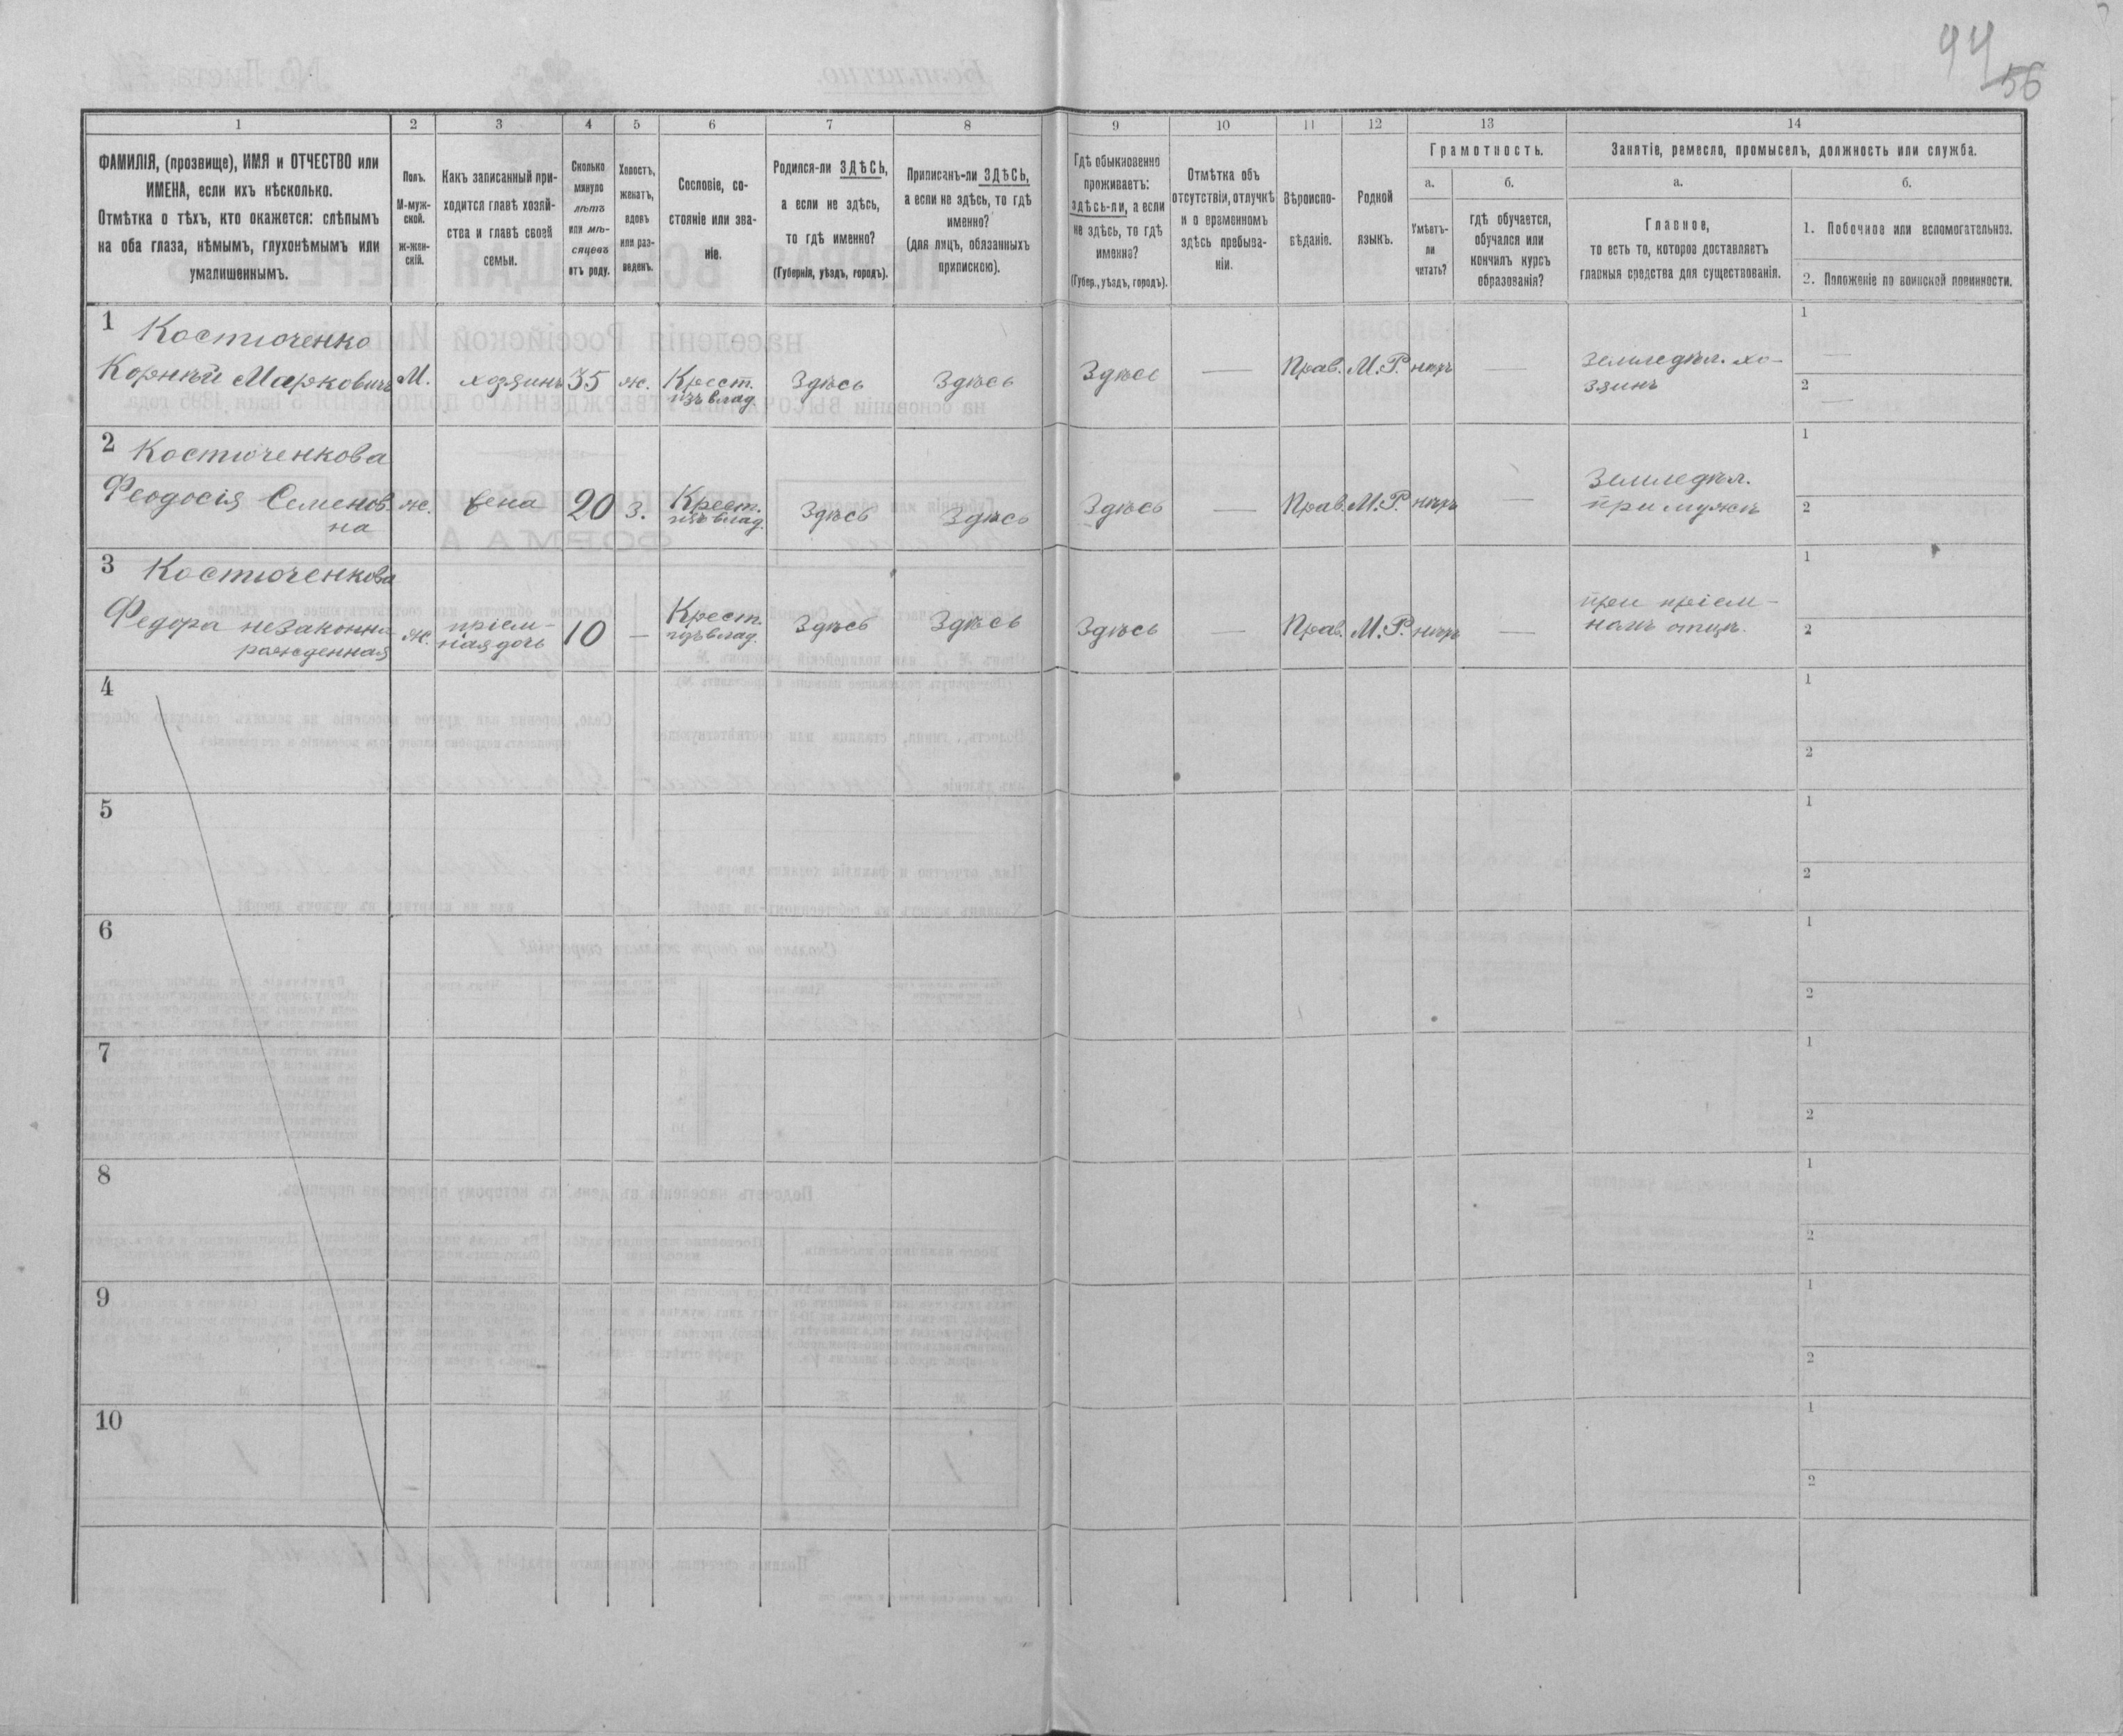 94
56
1 2 3 4 5 6 7 8 9 10 11 12 13 14
ФАМИЛІЯ, (прозвище), ИМЯ и ОТЧЕСТВО или
ИМЕНА, если ихъ нѣсколько.
Отмѣтка о тѣхъ, кто окажется: слѣпымъ
на оба глаза, нѣмымъ, глухонѣмымъ или
умалишеннымъ.
Полъ.
М-муж-
ской.
ж-жен-
скій.
Какъ записанный при-
ходится главѣ хозяй-
ства и главѣ своей
семьи.
Сколько
минуло
лѣтъ
или мѣ-
сяцевъ
отъ роду.
Холостъ,
женатъ,
вдовъ
или раз-
веденъ.
Сословіе, со-
стояніе или зва-
ніе.
Родился-ли ЗДѢСЬ,
а если не здѣсь,
то гдѣ именно?
(Губернія, уѣздъ, городъ).
Приписанъ-ли ЗДѢСЬ,
а если не здѣсь, то гдѣ
именно?
(для лицъ, обязанныхъ
припискою).
Гдѣ обыкновенно
проживаетъ:
здѣсь-ли, а если
не здѣсь, то гдѣ
именно?
(Губер., уѣздъ, городъ).
Отмѣтка объ
отсутствіи, отлучкѣ
и о временномъ
здѣсь пребыва-
ніи.
Вѣроиспо-
вѣданіе.
Родной
языкъ.
Грамотность.
а.
Умѣетъ-
ли
читать?
б.
гдѣ обучается,
обучался или
кончилъ курсъ
образованія?
Занятіе, ремесло, промыселъ, должность или служба.
а.
Главное,
то есть то, которое доставляетъ
главныя средства для существованія.
б.
1. Побочное или вспомогательное.
2. Положеніе по воинской повинности.
1 Костюченко
Корнѣй Марковичъ М. хозяинъ 35 ж. Крест. Здѣсь Здѣсь Здѣсь — Прав. М.Р. нѣтъ — Земледѣл. хо-
изъ влад. зяинъ
1 —
2 —
2 Костюченкова
Феодосія Семенов ж. жена 20 з. Крест. Здѣсь Здѣсь Здѣсь — Прав. М.Р. нѣтъ — Земледѣл.
на изъ влад. при мужѣ
1
2
3 Костюченкова
Федора незаконно ж. пріем- 10 — Крест. Здѣсь Здѣсь Здѣсь — Прав. М.Р. нѣтъ — при пріем-
рожденная ная дочь изъ влад. номъ отцѣ.
1
2
4
1
2
5
1
2
6
1
2
7
1
2
8
1
2
9
1
2
10
1
2